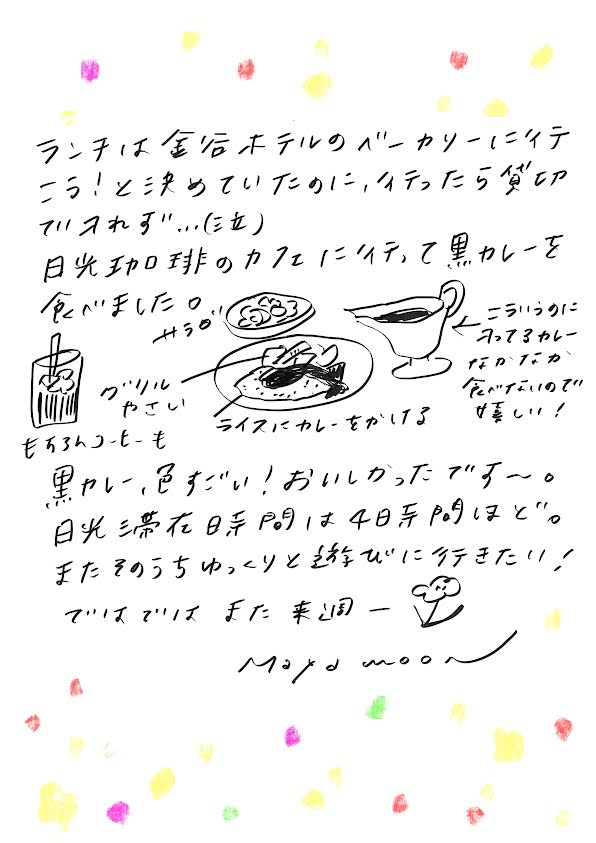 ランチは金谷ホテルのベーカリーに行
こう！と決めていたのに、行ったら貸切
で入れず…(泣)
日光珈琲のカフェに行って黒カレーを
食べました。
サラダ
こういうのに
入ってるカレー
なかなか
食べないので
嬉しい！
グリル
やさい
ライスにカレーをかける
もちろんコーヒーも
黒カレー、色すごい！おいしかったです〜。
日光滞在時間は4時間ほど。
またそのうちゆっくりと遊びに行きたい！
ではでは また来週ー
Maya moon